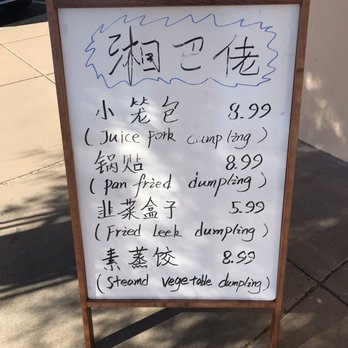 湘巴佬
小笼包 8.99
(Juice pork dumpling)
锅贴 8.99
(pan fried dumpling)
韭菜盒子 5.99
(Fried leek dumpling)
素蒸饺 8.99
(Steamd vegetable dumpling)